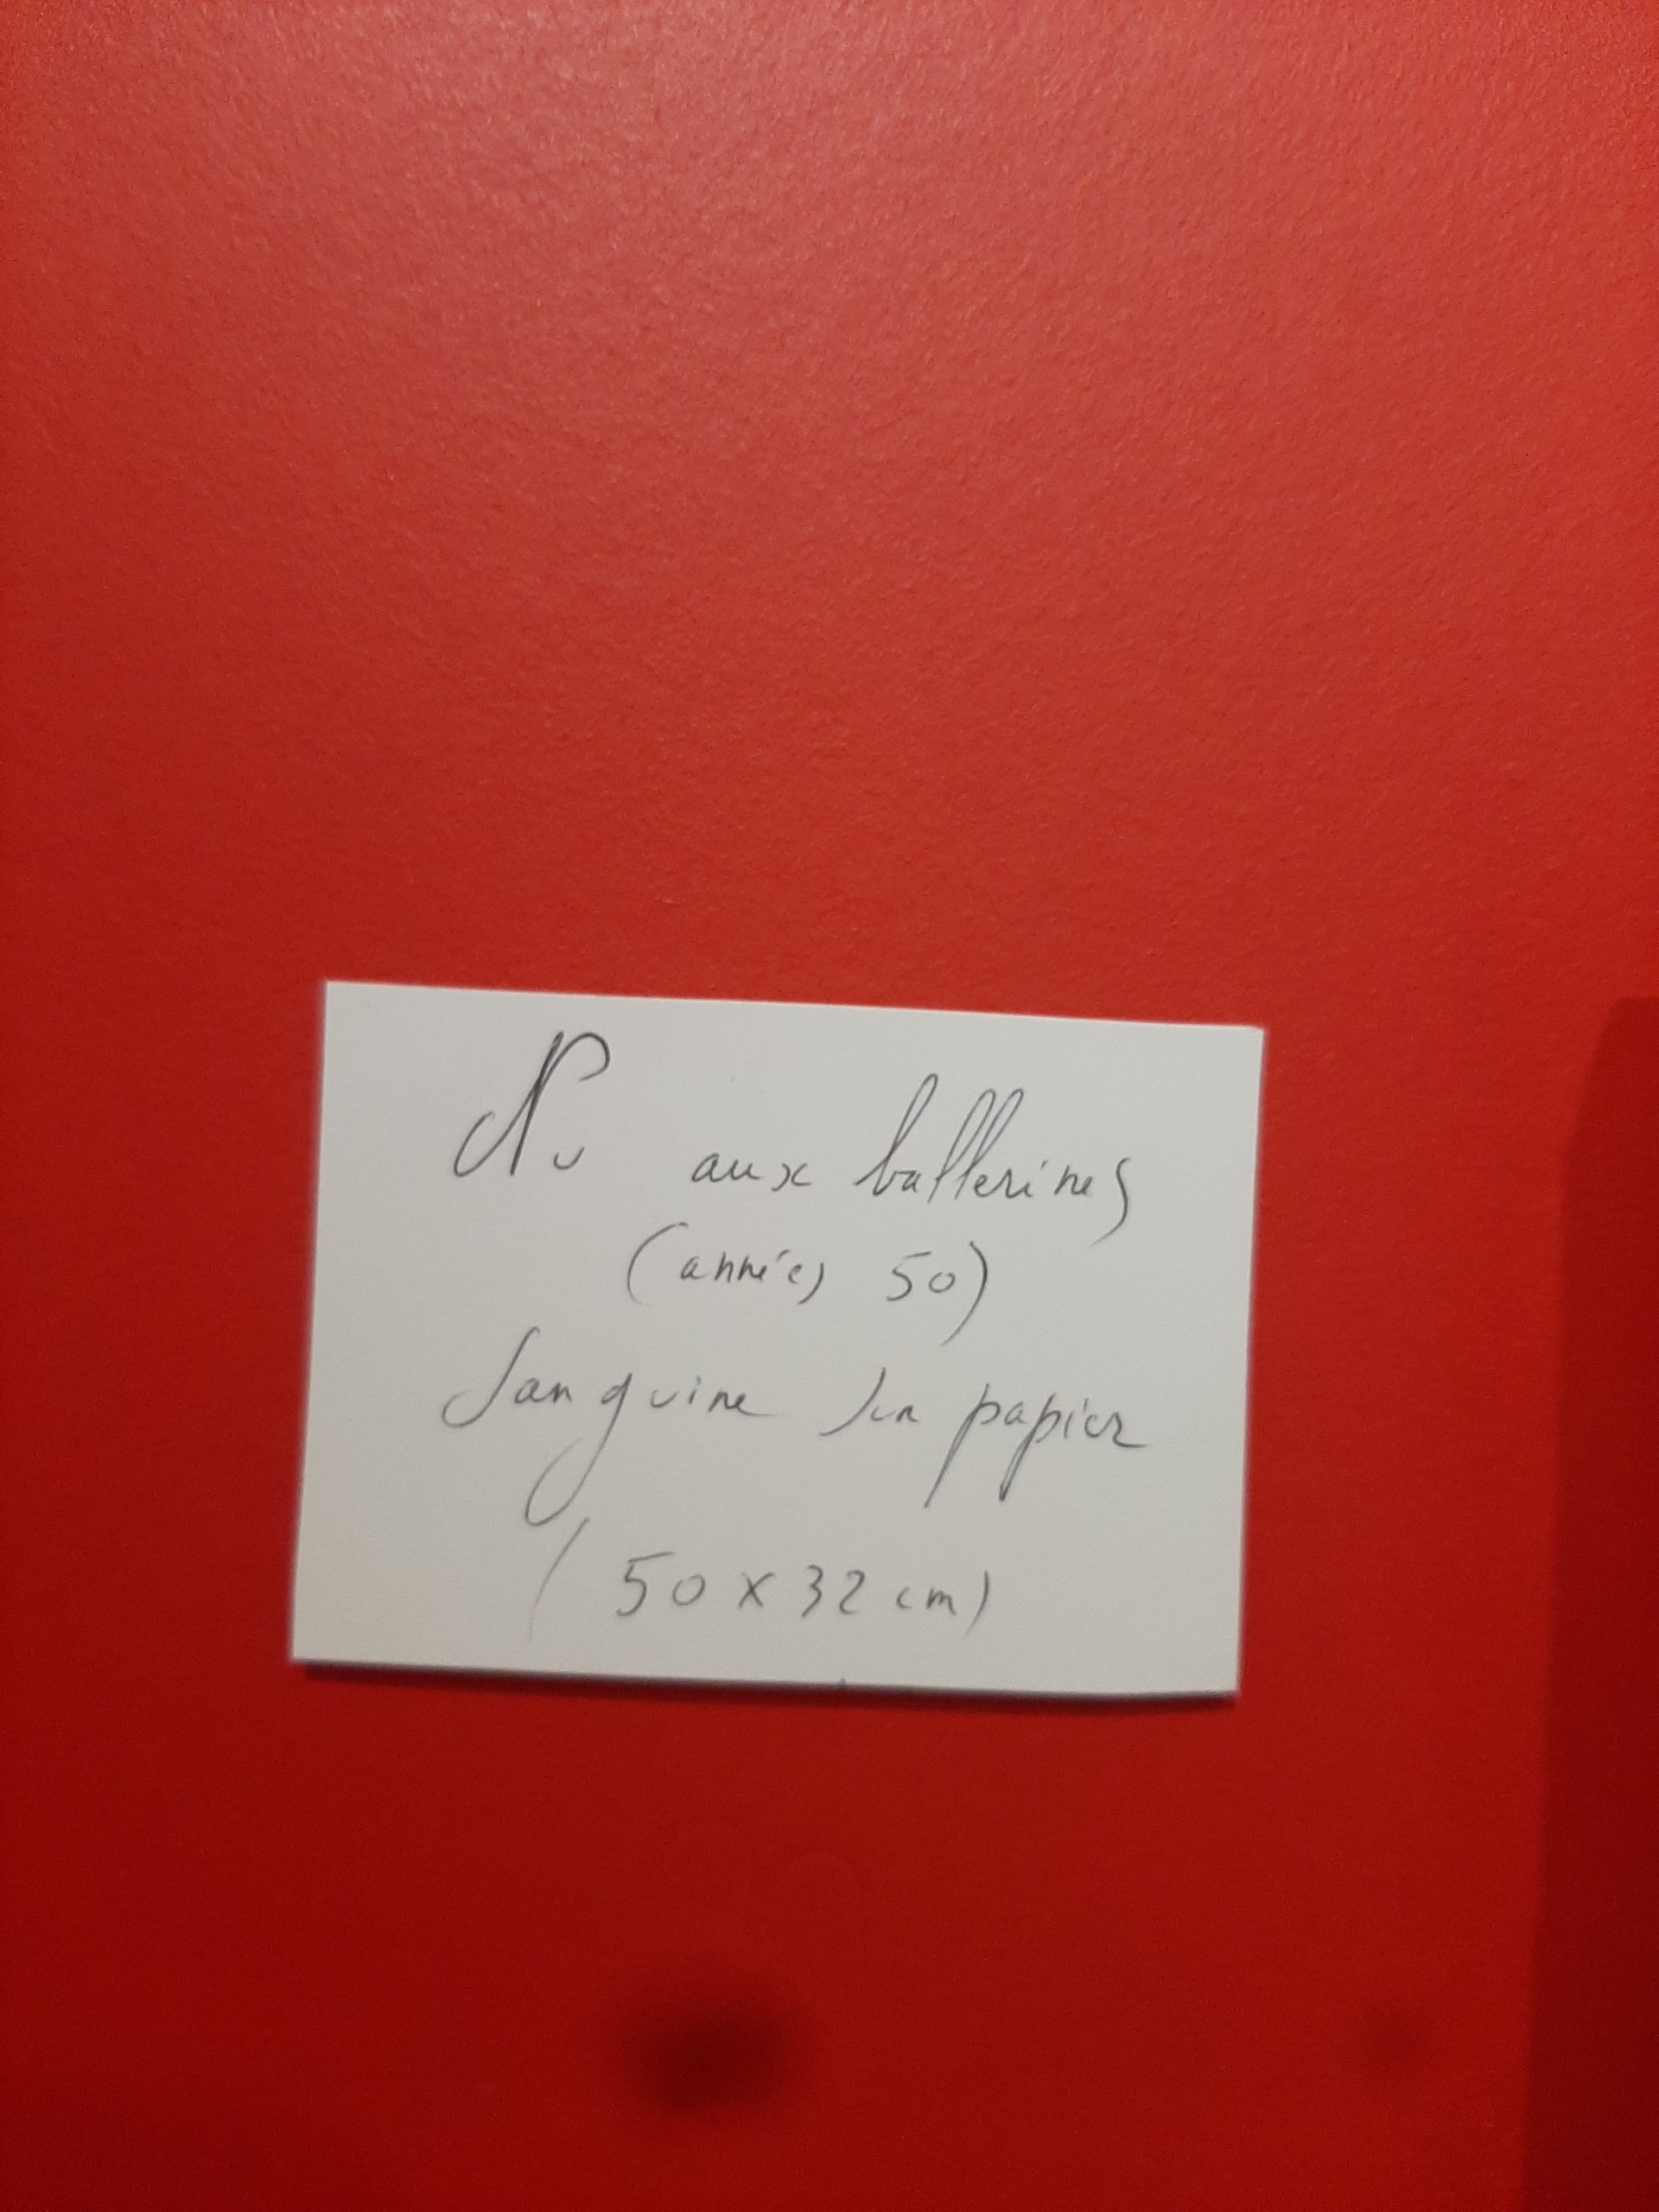 Nu aux ballerines
(années 50)
Sanguine sur papier
(50 x 32 cm)